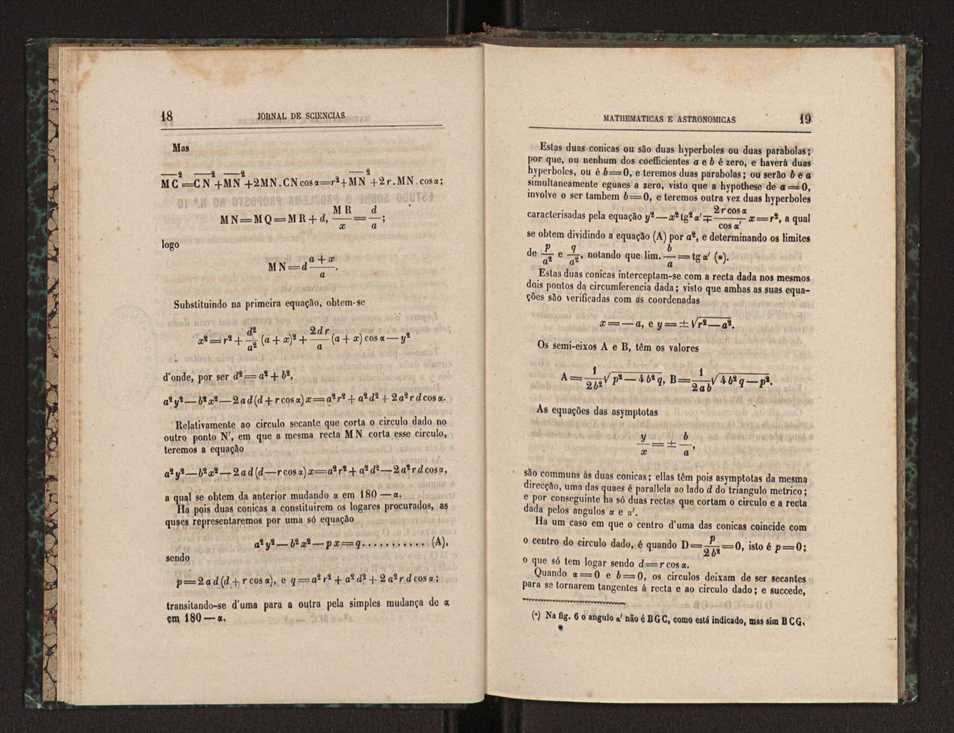 18 JORNAL DE SCIENCIAS
Mas
MC²=CN²+MN²+2MN.CN cos α=r²+MN²+2r.MN.cos α;
MN=MQ=MR+d, MR/x=d/a;
logo
MN=d (a+x)/a.
Substituindo na primeira equação, obtem-se
x²=r²+d²/a² (a+x)²+2dr/a (a+x) cos α—y²
d'onde, por ser d²=a²+b²,
a²y²—b²x²—2ad(d+r cos α)x=a²r²+a²d²+2a²rd cos α.
Relativamente ao circulo secante que corta o circulo dado no
outro ponto N', em que a mesma recta MN corta esse circulo,
teremos a equação
a²y²—b²x²—2ad(d—r cos α)x=a²r²+a²d²—2a²rd cos α,
a qual se obtem da anterior mudando α em 180—α.
Ha pois duas conicas a constituirem os logares procurados, as
quaes representaremos por uma só equação
a²y²—b²x²—px=q........... (A),
sendo
p=2ad(d+r cos α), e q=a²r²+a²d²+2a²rd cos α;
transitando-se d'uma para a outra pela simples mudança de α
em 180—α.
MATHEMATICAS E ASTRONOMICAS 19
Estas duas conicas ou são duas hyperboles ou duas parabolas;
por que, ou nenhum dos coefficientes a e b é zero, e haverá duas
hyperboles, ou é b=0, e teremos duas parabolas; ou serão b e a
simultaneamente eguaes a zero, visto que a hypothese de a=0,
involve o ser tambem b=0, e teremos outra vez duas hyperboles
caracterisadas pela equação y²—x² tg² α'∓(2r cos α)/(cos α') x=r², a qual
se obtem dividindo a equação (A) por a², e determinando os limites
de p/a² e q/a², notando que lim. b/a=tg α' (*).
Estas duas conicas interceptam-se com a recta dada nos mesmos
dois pontos da circumferencia dada; visto que ambas as suas equa-
ções são verificadas com as coordenadas
x=—a, e y=±√(r²—a²).
Os semi-eixos A e B, têm os valores
A=1/(2b²) √(p²—4b²q), B=1/(2ab) √(4b²q—p²).
As equações das asymptotas
y/x=±b/a,
são communs ás duas conicas; ellas têm pois asymptotas da mesma
direcção, uma das quaes é parallela ao lado d do triangulo metrico;
e por conseguinte ha só duas rectas que cortam o circulo e a recta
dada pelos angulos α e α'.
Ha um caso em que o centro d'uma das conicas coincide com
o centro do circulo dado, é quando D=p/(2b²)=0, isto é p=0;
o que só tem logar sendo d=r cos α.
Quando α=0 e b=0, os circulos deixam de ser secantes
para se tornarem tangentes á recta e ao circulo dado; e succede,
(*) Na fig. 6 o angulo α' não é BGC, como está indicado, mas sim BCG.